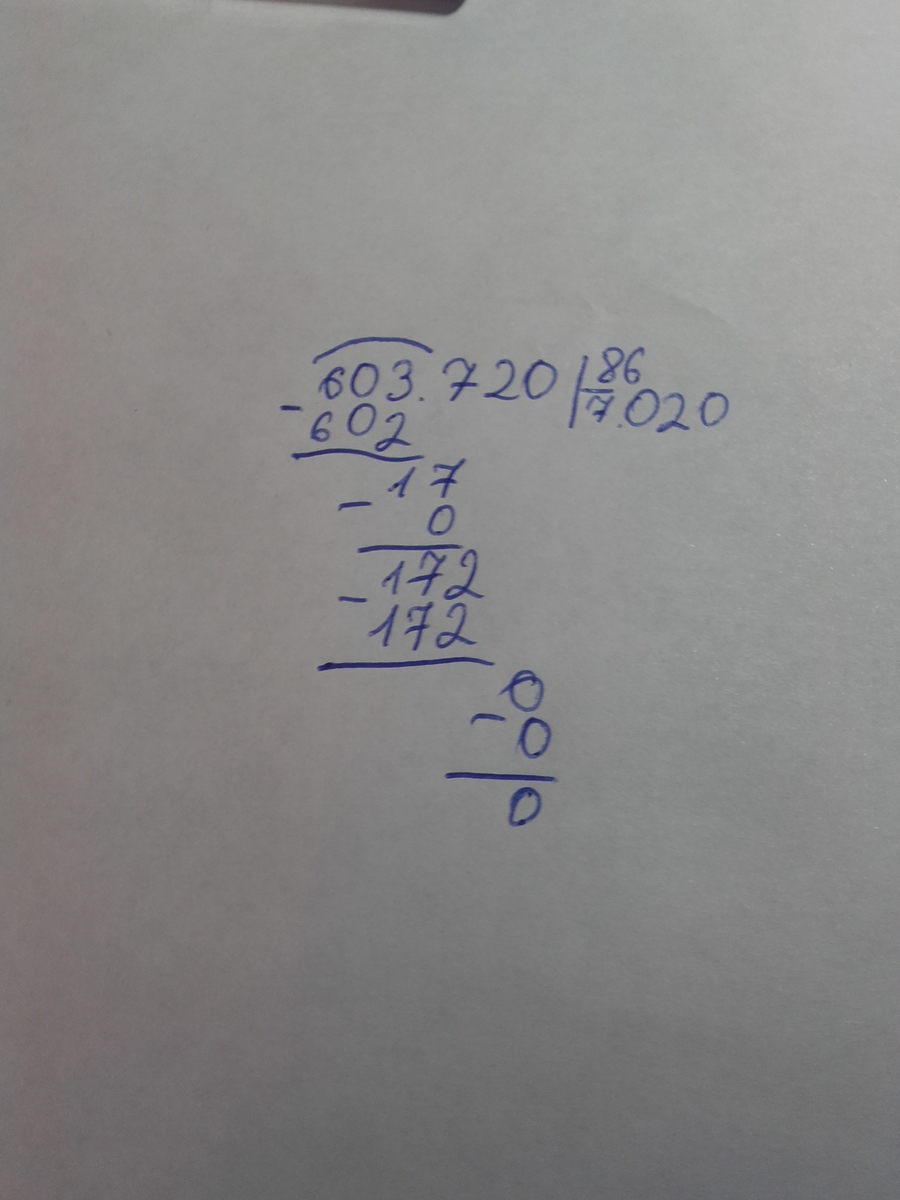 603.720 | 86
- 602 7.020
- 17
0
- 172
172
0
- 0
0